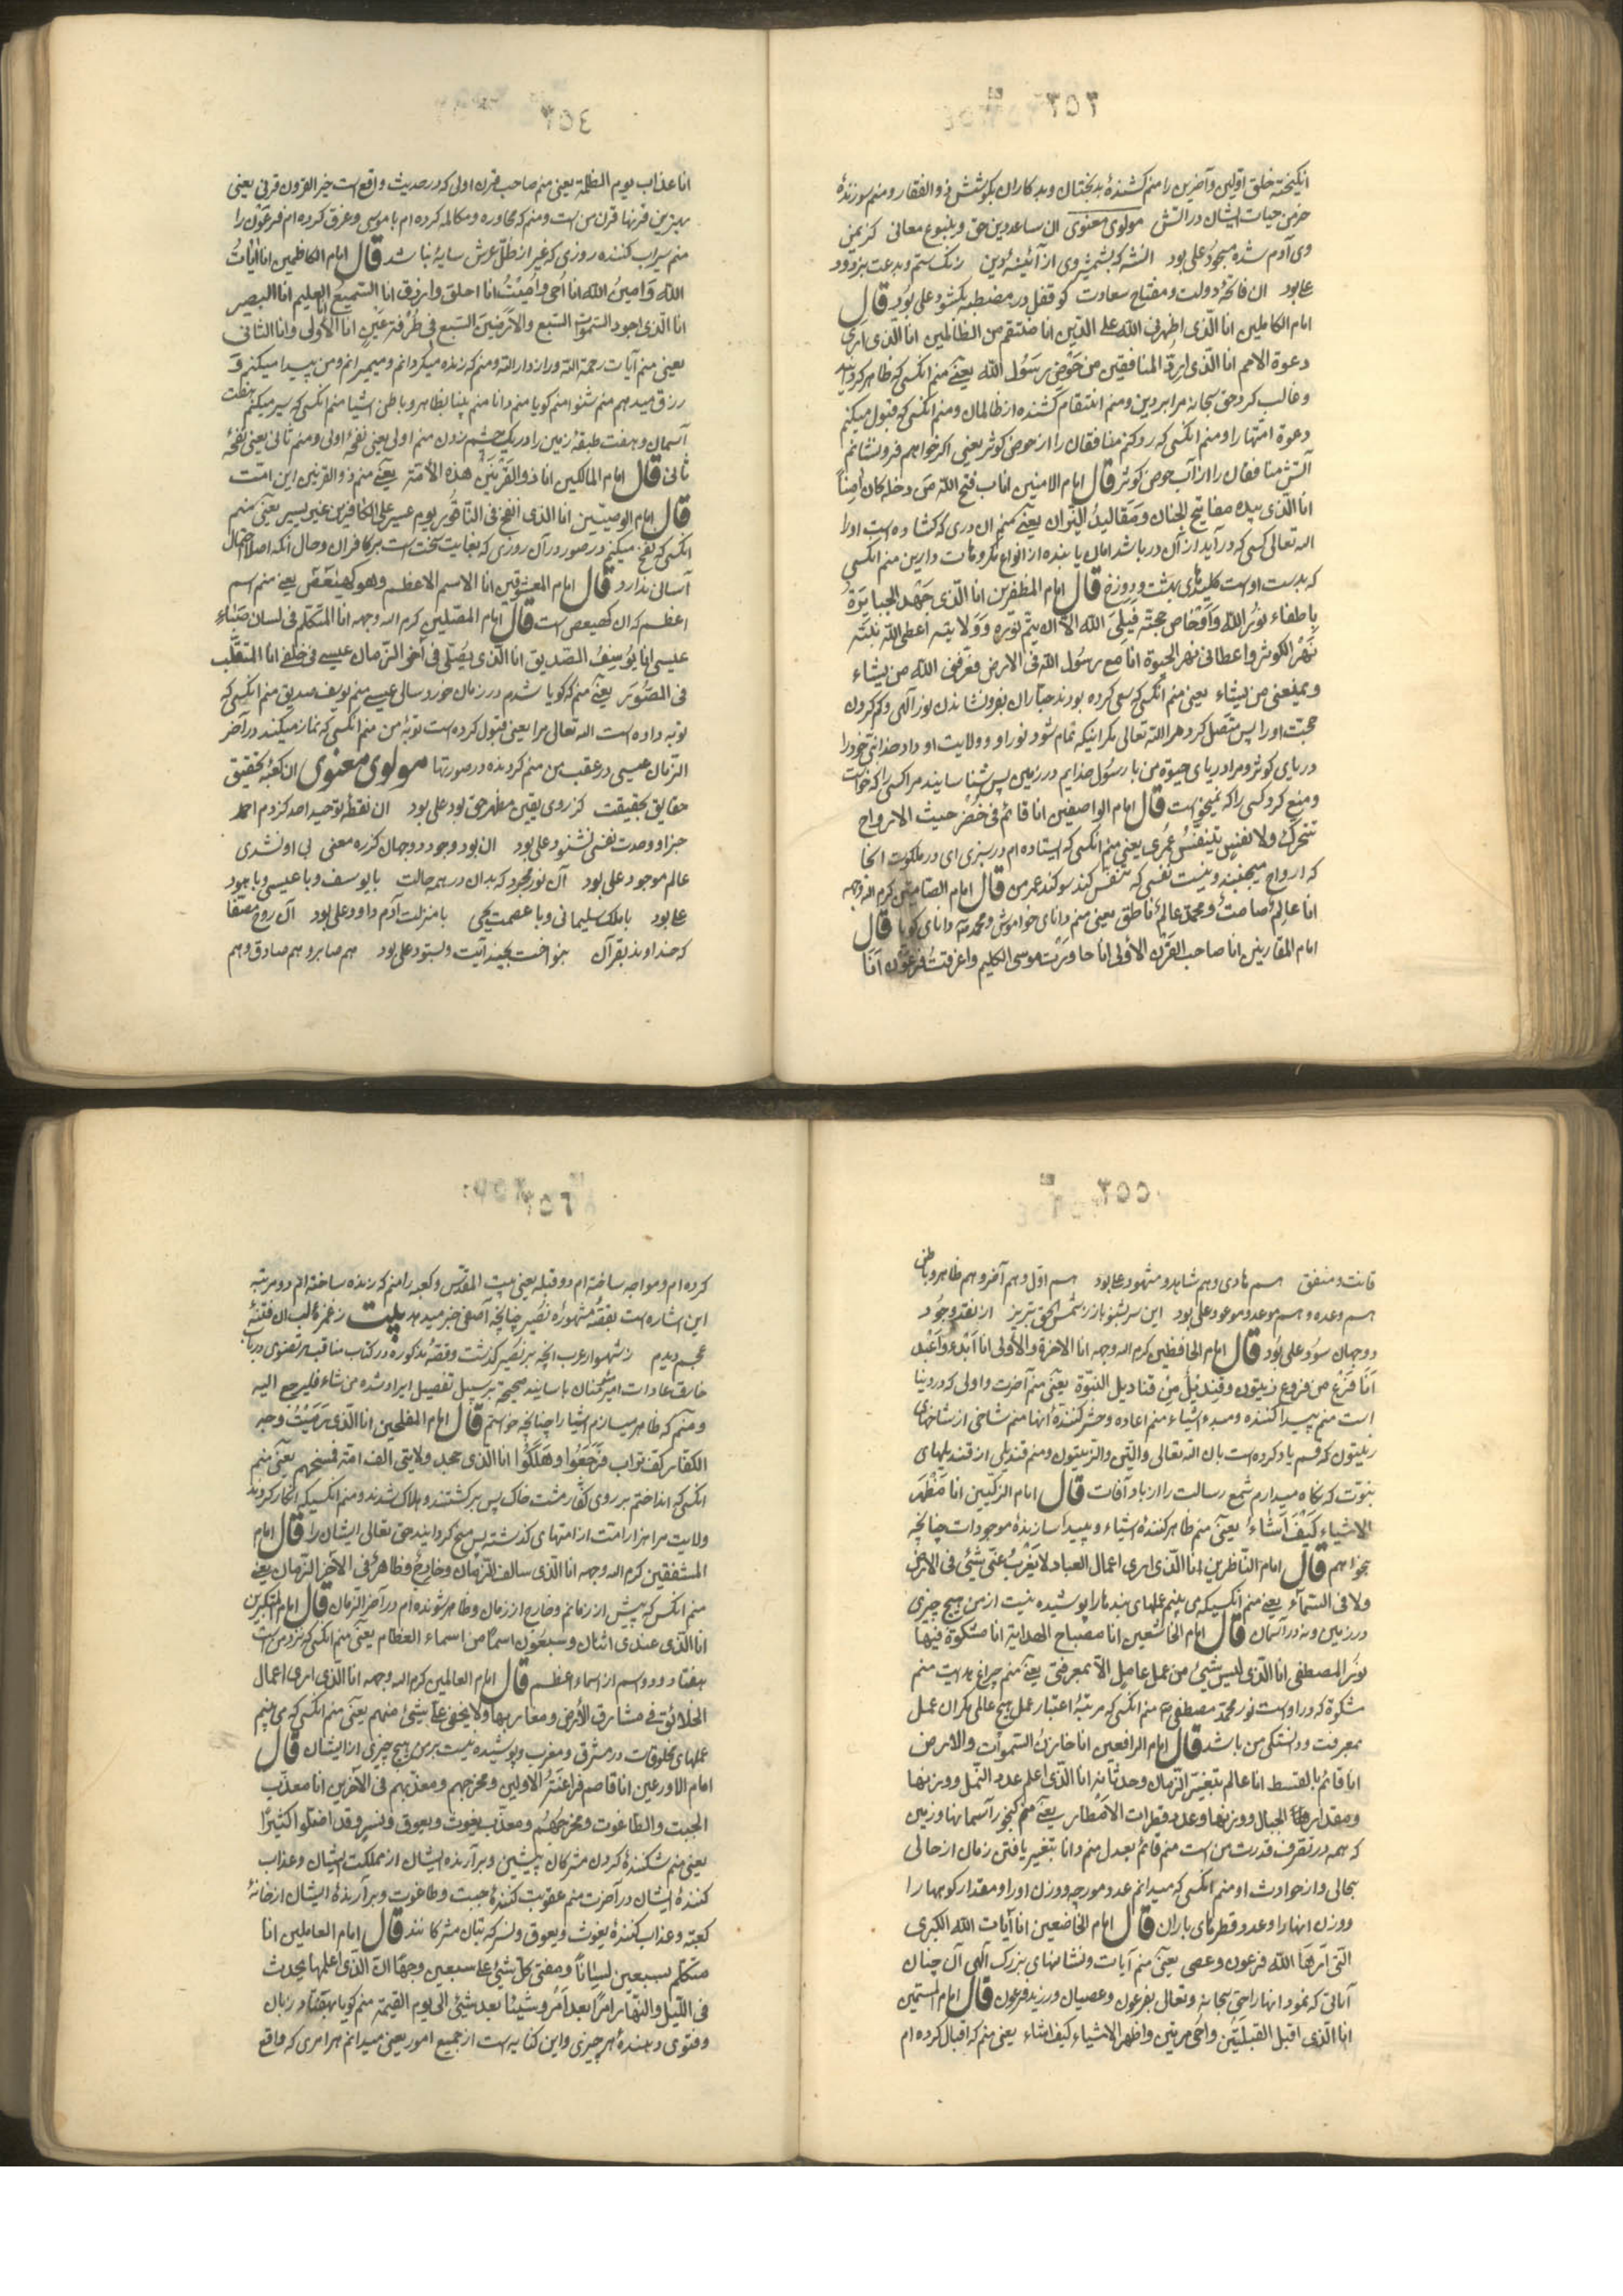 انکیخته خلق اولین وآخرین را منم کشندهٔ بدبختان وبدکاران بکوشش ذوالفقار ومنم سوزندهٔ
خرمن حیات ایشان در آتش مولوی معنوی آن ساعد دین حق وینبوع معانی کز یمن
وی آدم شده مسجود علی بود آن شه که بشمشیر وی از آئینه دین زنک ستم وبدعت بزدود
علی بود آن فاتحهٔ دولت ومفتاح سعادت کو قفل در مصطبه بکشود علی بود قال
امام الکاملین انا الذی اظهرنی الله علی الدین انا منتقم من الظالمین انا الذی اری
دعوة الامم انا الذی ارد المنافقین من حوض رسول الله یعنی منم انکسی که ظاهر کردانید
وغالب کرد حق سبحانه مرا بر دین ومنم انتقام کشنده از ظالمان ومنم انکسی که قبول میکنم
دعوة امتها را ومنم انکسی که رد کنم منافقان را از حوض کوثر یعنی اکر خواهم فرو نشانم
آتش منافقان را از آب حوض کوثر قال امام الامنین انا باب فتح الله من دخله کان امنا
انا الذی بیده مفاتیح الجنان ومقالید النیران یعنی منم ان دری که کشاده است اورا
الله تعالی کسی که در آید از آن در باشد امان یابنده از انواع مکروهات دارین منم انکسی
که بدست اوست کلیدهای بهشت ودوزخ قال امام المظفرین انا الذی جهد الجبابرة
باطفاء نور الله وادحاض حجته فیابی الله الا ان یتم نوره وولایته اعطی الله نبیه
نهر الکوثر واعطانی نهر الحیوة انا مع رسول الله فی الارض فعرفنی الله من یشاء
ویمنعنی من یشاء یعنی منم انکسی که سعی کرده بودند جباران بفرو نشاندن نور الهی وکم کردن
دریای کوثر ومرا دریای حیوة من با رسول خدایم در زمین پس شناسانید مرا کسی را که خواست
ومنع کرد کسی را که نمیخواست قال امام الواصفین انا قائم فی خضر حیث الارواح
تتحرک ولا نفس یتنفس غیری یعنی منم انکسی که ایستاده ام در سبزی ای در ملکوت انجا
که ارواح میجنبند ونیست نفسی که تنفس کند قال امام الصامتین کرم الله وجهه
انا عالم صامت ومحمد عالم ناطق یعنی منم دانای خواموش ومحمد دانای کویا قال
امام المقارنین انا صاحب القرن الاولی انا حاورت موسی الکلیم واغرقت فرعون انا
انا عذاب یوم الظلة یعنی منم صاحب قرن اولی که در حدیث واقع است خیر القرون قرنی یعنی
بهترین قرنها قرن من است ومنم که محاوره ومکالمه کرده ام با موسی وغرق کرده ام فرعون را
منم سیراب کننده روزی که غیر از ظل عرش سایهٔ نباشد قال امام الکاظمین انا ایات
الله وامین الله انا احی وامیت انا اخلق وارزق انا السمیع العلیم انا البصیر
انا الذی اجود السموات السبع والارضین السبع فی طرفة عین انا الاولی وانا الثانی
یعنی منم آیات رحمة الله ورازدار الله ومنم که زنده میکردانم ومیمیرانم ومن پیدا میکنم و
رزق میدهم منم شنوا منم کویا منم دانا منم بینا بظاهر وباطن اشیا منم انکسی که سیر میکنم هفت
آسمان وهفت طبقهٔ زمین را در یک چشم زدن منم اولی یعنی نفخهٔ اولی ومنم ثانی یعنی نفخهٔ
ثانی قال امام المالکین انا ذو القرنین هذه الامة یعنی منم ذو القرنین این امت
قال امام الوصیین انا الذی انفخ فی الناقور یوم عسیر علی الکافرین غیر یسیر یعنی منم
انکسی که نفخ میکنم در صور در آن روزی که بغایت سخت است بر کافران وحال آنکه اصلا احتمال
آسان ندارد قال امام المعشوقین انا الاسم الاعظم وهو کهیعص یعنی منم اسم
اعظم که ان کهیعص است قال امام المصلین کرم الله وجهه انا المتکلم فی لسان صباء
عیسی انا یوسف الصدیق انا الذی یصلی فی اخر الزمان عیسی فی خلفی انا المتقلب
فی الصور یعنی منم که کویا شدم در زمان خورد سالی عیسی منم یوسف صدیق منم انکسی که
توبه داده است الله تعالی مرا یعنی قبول کرده است توبهٔ من منم انکسی که نماز میکند در آخر
الزمان عیسی در عقب من منم کردنده در صورتها مولوی معنوی ان کعبهٔ تحقیق
حقایق بحقیقت کز روی یقین مظهر حق بود علی بود ان نقطهٔ توحید احد کز دم احمد
جز او وحدت نفسی نشنود علی بود ان بود وجود دو جهان کز ره معنی بی او نشدی
عالم موجود علی بود آن نور مجرد که بدان در همه حالت با یوسف وبا عیسی وبا هود
علی بود با ملک سلیمانی وبا عصمت یحیی با منزلت آدم داود علی بود آن روح مصفا
که خداوند بقرآن بنواخت بچند آیت وبستود علی بود هم صابر وهم صادق وهم
قانت ومنفق هم هادی وهم شاهد ومشهود علی بود هم اول وهم آخر وهم ظاهر وباطن
هم وعده وهم موعد وموعود علی بود این سر بشنو باز ز شمس الحق تبریز از نقد وجود
دو جهان سود علی بود قال امام الحافظین کرم الله وجهه انا الاخرة والاولی انا ابدء واعید
انا فرع من فروع زیتون وقندیل من قنادیل النبوة یعنی منم آخرت واولی که در دنیا
است منم پیدا کننده ومبدء اشیاء منم اعاده وحشر کنندهٔ انها منم شاخی از شاخهای
زیتون که قسم یاد کرده است بان الله تعالی والتین والزیتون ومنم قندیلی از قندیلهای
نبوت که نکاه میدارم شمع رسالت را از باد آفات قال امام الزکیین انا مظهر
الاشیاء کیف اشاء یعنی منم ظاهر کنندهٔ اشیاء وپیدا سازندهٔ موجودات چنانچه
بخواهم قال امام الناظرین انا الذی اری اعمال العباد لا یعزب عنی شیئ فی الارض
ولا فی السماء یعنی منم انکسیکه می بینم عملهای بندها را پوشیده نیست از من هیچ چیزی
در زمین ونه در آسمان قال امام الخاشعین انا مصباح الهدایة انا مشکوة فیها
نور المصطفی انا الذی لیس شیئ من عمل عامل الا بمعرفتی یعنی منم چراغ هدایت منم
مشکوة که در اوست نور محمد مصطفی منم انکسی که مرتبهٔ اعتبار عمل هیچ عاملی مکر ان عمل
بمعرفت ودانستکی من باشد قال امام الرافعین انا خازن السموات والارض
انا قائم بالقسط انا عالم بتغیر الزمان وحدثانه انا الذی اعلم عدد النمل ووزنها
ومقدار الجبال ووزنها وعدد قطرات الامطار یعنی منم کنجور آسمانها وزمین
که همه در تصرف قدرت من است منم قائم بعدل منم دانا بتغیر یافتن زمان از حالی
بحالی واز حوادث او منم انکسی که میدانم عدد مورچه ووزن اورا ومقدار کوهها را
ووزن انها را وعدد قطرهای باران قال امام الخاضعین انا آیات الله الکبری
التی اراها الله فرعون وعصی یعنی منم آیات ونشانهای بزرک الهی آن چنان
آیاتی که نمود انها را حق سبحانه وتعالی بفرعون وعصیان ورزید فرعون قال امام
انا الذی اقبل القبلتین واحی مرتین واظهر الاشیاء کیف اشاء یعنی منم که اقبال کرده ام
کرده ام ومواجه ساخته ام دو قبله یعنی بیت المقدس وکعبه را منم که زنده ساخته ام دو مرتبه
این اشاره است بقصهٔ مشهورهٔ نصیر چنانچه آصفی خبر میدهد بیت ز غمزهٔ غالب ان فتنهٔ
عجم دیدم ز شهسوار عرب انچه بر نصیر کذشت وقصهٔ مذکوره در کتاب مناقب مرتضوی در باب
خارق عادات امیر مؤمنان باسانید صحیحه بر سبیل تفصیل ایراد شده من شاء فلیرجع الیه
ومنم که ظاهر میسازم اشیا را چنانچه خواستم قال امام المفلحین انا الذی رمیت وجه
الکفار کف تراب فرجعوا وهلکوا انا الذی جحد ولایتی الف امة فمسخهم یعنی منم
انکسی که انداختم بر روی کفار مشت خاک پس برکشتند وهلاک شدند ومنم انکسیکه انکار کردند
ولایت مرا هزار امت از امتهای کذشته پس مسخ کردانید حق تعالی ایشان را قال امام
المشفقین کرم الله وجهه انا الذی سالف الزمان وخارج وظاهر فی الآخر الزمان یعنی
منم انکس که پیش از زمانم وخارج از زمان وظاهر شونده ام در آخر الزمان قال امام
انا الذی عندی اثنان وسبعون اسما من اسماء العظام یعنی منم انکسی که نزد من است
هفتاد ودو اسم از اسماء اعظم قال امام العالمین کرم الله وجهه انا الذی اری اعمال
الخلائق فی مشارق الارض ومغاربها ولا یخفی علی شیئ منهم یعنی منم انکسی که می بینم
عملهای مخلوقات در مشرق ومغرب وپوشیده نیست بر من هیچ چیزی از ایشان قال
امام الاورعین انا قاصم فراعنة الاولین ومخرجهم ومعذبهم فی الآخرین انا معذب
الجبت والطاغوت ومخرجهم ومعذب یغوث ویعوق ونسر وقد اضلوا کثیرا
یعنی منم شکنندهٔ کردن مشرکان پیشین وبرآرنده ایشان از مملکت ایشان وعذاب
کنندهٔ ایشان در آخرت منم عقوبت کنندهٔ جبت وطاغوت وبرآرندهٔ ایشان از خانهٔ
کعبه وعذاب کنندهٔ یغوث ویعوق ونسر که بتان مشرکانند قال امام العاملین انا
متکلم بسبعین لسانا ومفتی کل شیئ علی سبعین وجها انا الذی اعلم ما یحدث
فی اللیل والنهار امرا بعد امر وشیئا بعد شیئ الی یوم القیمة منم کویا بهفتاد زبان
وفتوی دهندهٔ هر چیزی واین کنایه است از جمیع امور یعنی میدانم هر امری که واقع